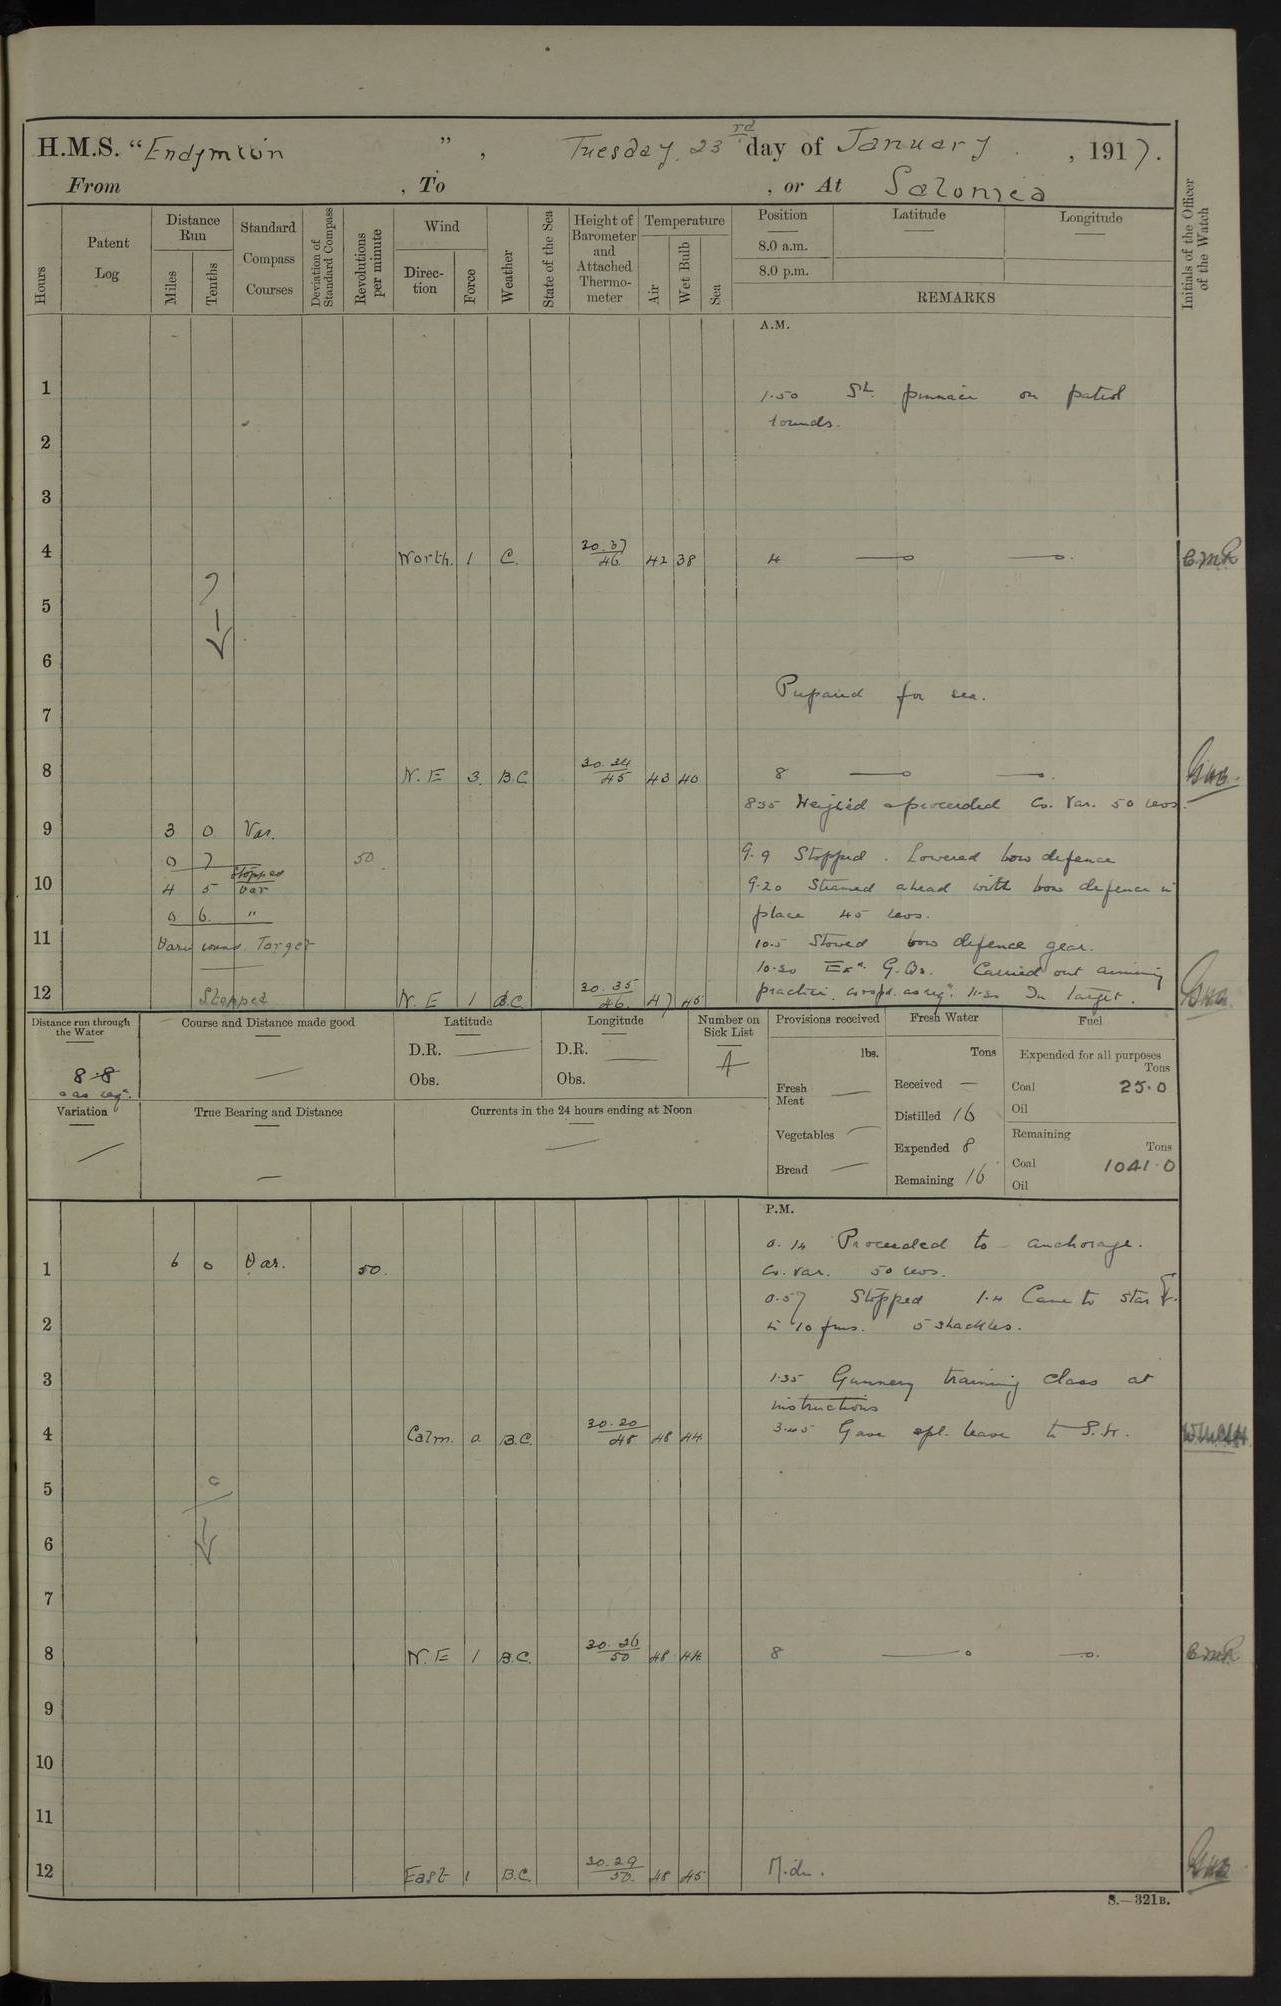 H.M.S. "Endymion", Tuesday, 23rd day of January, 1917.
From , To , or At Salonica
Hours
Patent Log
Distance Run
Miles
Tenths
Standard Compass Courses
Deviation of Standard Compass
Revolutions per minute
Wind
Direc-tion
Force
Weather
State of the Sea
Height of Barometer and Attached Thermo-meter
Temperature
Air
Wet Bulb
Sea
Position
Latitude
Longitude
8.0 a.m.
8.0 p.m.
REMARKS
Initials of the Officer of the Watch
A.M.
1
1.50 St. pinnace on patrol
rounds.
2
3
4 North. 1 C. 30.37 46 42 38 4
5
6
Prepared for sea.
7
8 N.E 3 B.C 30.34 45 43 40 8
8.35 Weighed & proceeded Co. Var. 50 revs.
9 3 0 Var.
0 7 50 9.9 Stopped. Lowered bow defence
Stopped
10 4 5 Var 9.20 Steamed ahead with bow defence in
0 6 " place 45 revs.
11 Target 10.5 Stowed bow defence gear.
10.30 Exd. G.Qrs. Carried out aiming
12 Stopped N.E 1 B.C 30.35 46 47 45 practice. Co. & spd. as reqd.
Distance run through the Water
8.8
& as reqd.
Course and Distance made good
Latitude
D.R.
Obs.
Longitude
D.R.
Obs.
Number on Sick List
4
Provisions received
lbs.
Fresh Meat
Vegetables
Bread
Fresh Water
Tons
Received
Distilled 16
Expended 8
Remaining 16
Fuel
Expended for all purposes
Tons
Coal 25.0
Oil
Remaining
Tons
Coal 1041.0
Oil
Variation
True Bearing and Distance
Currents in the 24 hours ending at Noon
P.M.
0.14 Proceeded to anchorage.
1 6 0 Var. 50. Co. var. 50 revs.
0.57 Stopped 1.4 Came to star
2 in 10 fms. 5 shackles.
3 1.35 Gunnery training class at
instructions
4 Calm. 0 B.C. 30.20 48 48 44 3.45 Gave spl. leave to S.H.
5
6
7
8 N.E 1 B.C. 30.26 50 48 44 8
9
10
11
12 East 1 B.C. 30.29 50. 48 45 Mdn.
S.—321B.